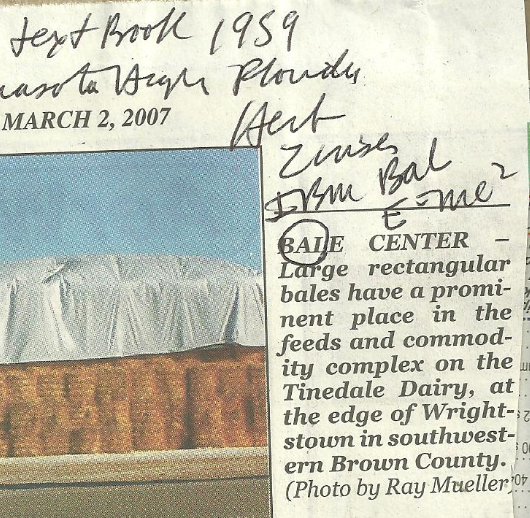 text Book 1959
High
MARCH 2, 2007
Herb
IBM Bal
E=mc²
BALE CENTER –
Large rectangular
bales have a promi-
nent place in the
feeds and commod-
ity complex on the
Tinedale Dairy, at
the edge of Wright-
stown in southwest-
ern Brown County.
(Photo by Ray Mueller)